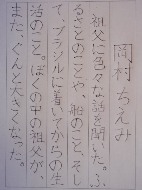 岡村 ちえみ
祖父に色々な話を聞いた。ふ
るさとのことや、船のこと、そし
て、ブラジルに着いてからの生
活のこと。ぼくの中の祖父が
また、ぐんと大きくなった。